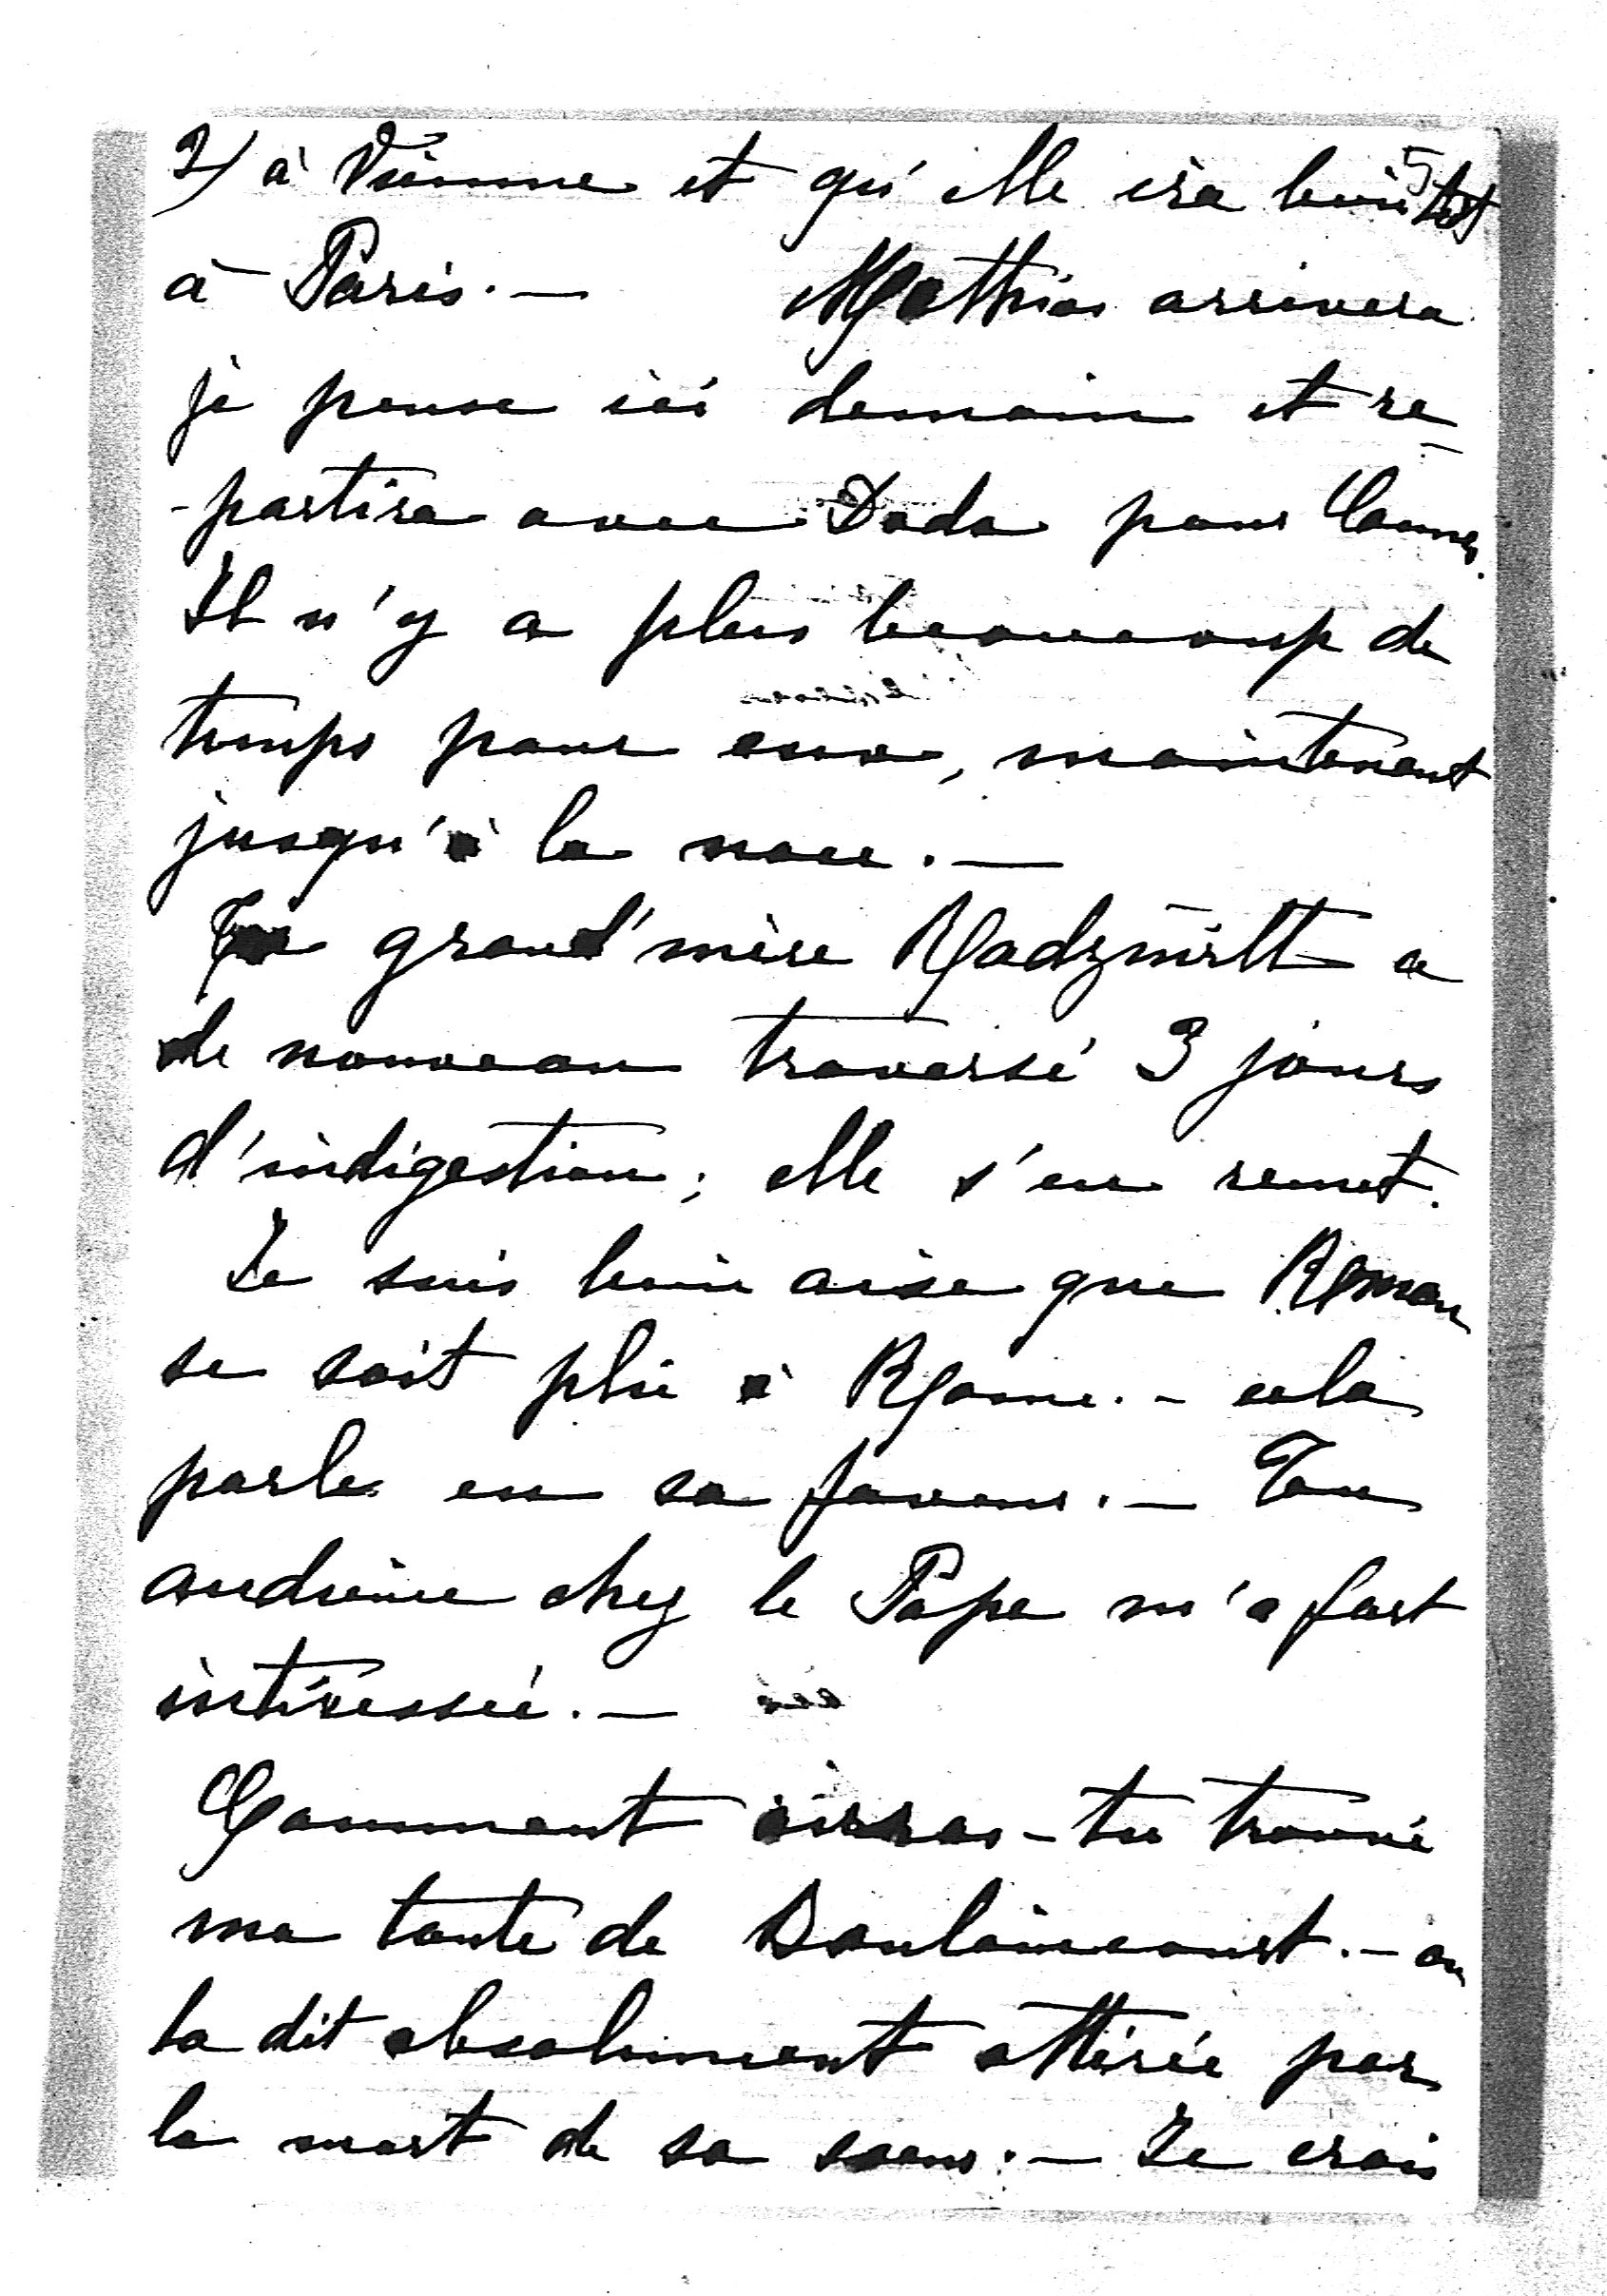 2) à Vienne et qu'elle ira bientôt
à Paris. — Mathias arrivera
je pense ici demain et re-
-partira avec Doda pour Cannes.
Il n'y a plus beaucoup de
temps pour eux, maintenant
jusqu'à la noce. —
Ta grand'mère Radziwill a
de nouveau traversé 3 jours
d'indigestion; elle s'en remet.
Je suis bien aise que Roman
se soit plu à Rome. - cela
parle en sa faveur. — Ton
audience chez le Pape m'a fort
intéressée. —
Comment auras-tu trouvé
ma tante de Doulaincourt. - on
la dit absolument attérée par
la mort de sa soeur. — Je crois